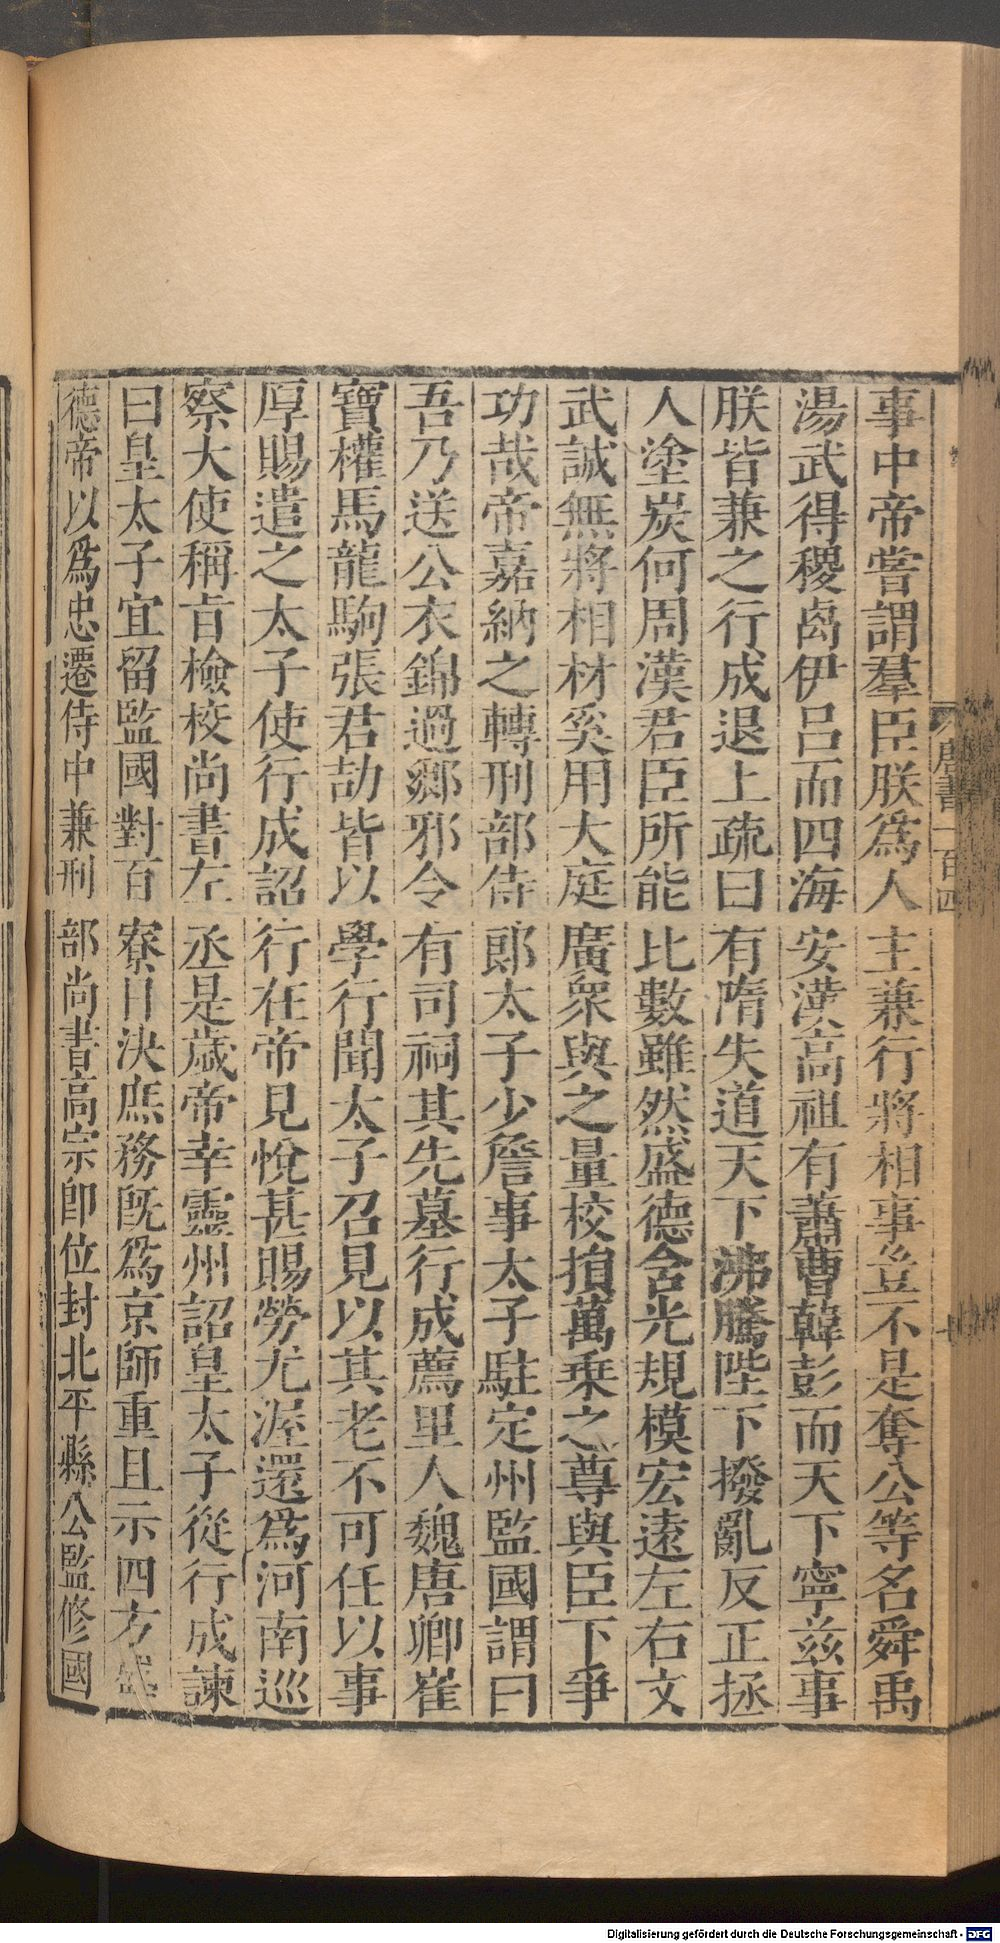 唐書一百四
事中帝嘗謂羣臣朕爲人主兼行將相事豈不是奪公等名舜禹
湯武得稷卨伊呂而四海安漢高祖有蕭曹韓彭而天下寧茲事
朕皆兼之行成退上疏曰有隋失道天下沸騰陛下撥亂反正拯
人塗炭何周漢君臣所能比數雖然盛德含光規模宏遠左右文
武誠無將相材奚用大庭廣衆與之量校損萬乗之尊與臣下爭
功哉帝嘉納之轉刑部侍郎太子少詹事太子駐定州監國謂曰
吾乃送公衣錦過鄉邪令有司祠其先墓行成薦里人魏唐卿崔
寶權馬龍駒張君劼皆以學行聞太子召見以其老不可任以事
厚賜遣之太子使行成詔行在帝見悅甚賜勞尤渥還爲河南巡
察大使稱㫖檢校尚書左丞是歲帝幸靈州詔皇太子從行成諫
曰皇太子宜留監國對百寮日決庶務旣爲京師重且示四方盛
德帝以爲忠遷侍中兼刑部尚書高宗卽位封北平縣公監修國
Digitalisierung gefördert durch die Deutsche Forschungsgemeinschaft - DFG